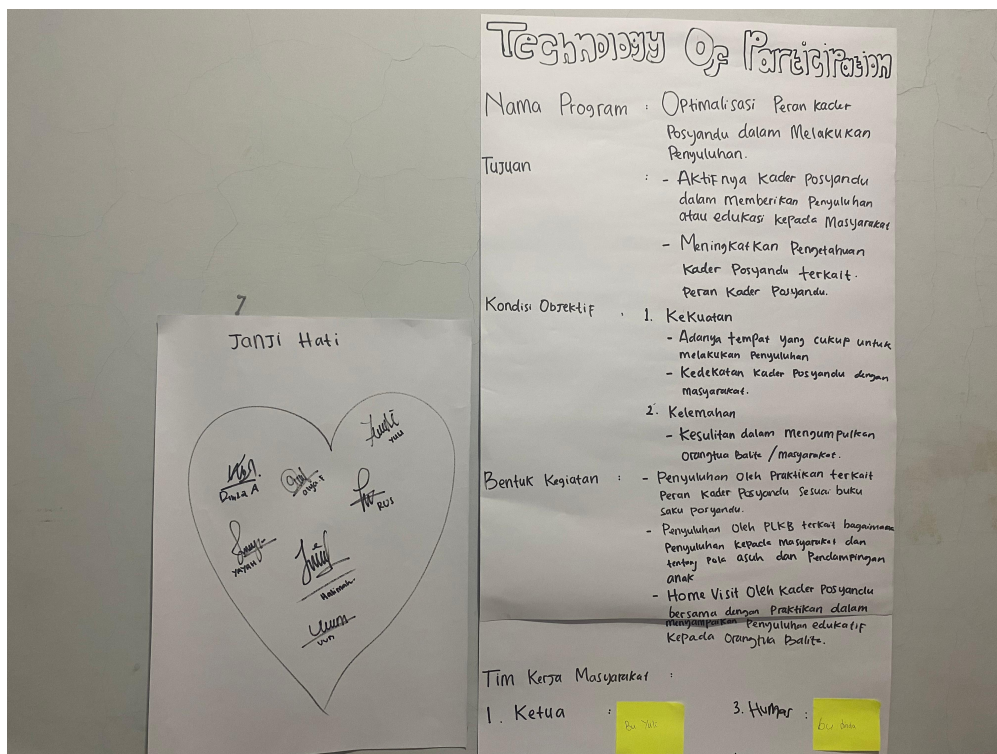 Janji Hati
Yuli
Dinda A
RUS
YAYAH
Halimah
UUN
Technology Of Participation
Nama Program : Optimalisasi Peran kader
Posyandu dalam Melakukan
Penyuluhan.
Tujuan : - Aktifnya Kader Posyandu
dalam Memberikan Penyuluhan
atau edukasi kepada Masyarakat
- Meningkatkan Pengetahuan
Kader Posyandu terkait.
Peran Kader Posyandu.
Kondisi Objektif : 1. Kekuatan
- Adanya tempat yang cukup untuk
melakukan Penyuluhan
- Kedekatan Kader Posyandu dengan
masyarakat.
2. Kelemahan
- Kesulitan dalam mengumpulkan
Orangtua Balita / masyarakat.
Bentuk Kegiatan : - Penyuluhan Oleh Praktikan terkait
Peran Kader Posyandu Sesuai buku
saku Posyandu.
- Penyuluhan Oleh PLKB terkait bagaimana
Penyuluhan kepada masyarakat dan
tentang Pola asuh dan Pendampingan
anak
- Home Visit Oleh Kader Posyandu
bersama dengan Praktikan dalam
menyampaikan Penyuluhan edukatif
Kepada Orangtua Balita.
Tim Kerja Masyarakat :
1. Ketua : Bu Yuli 3. Humas : bu